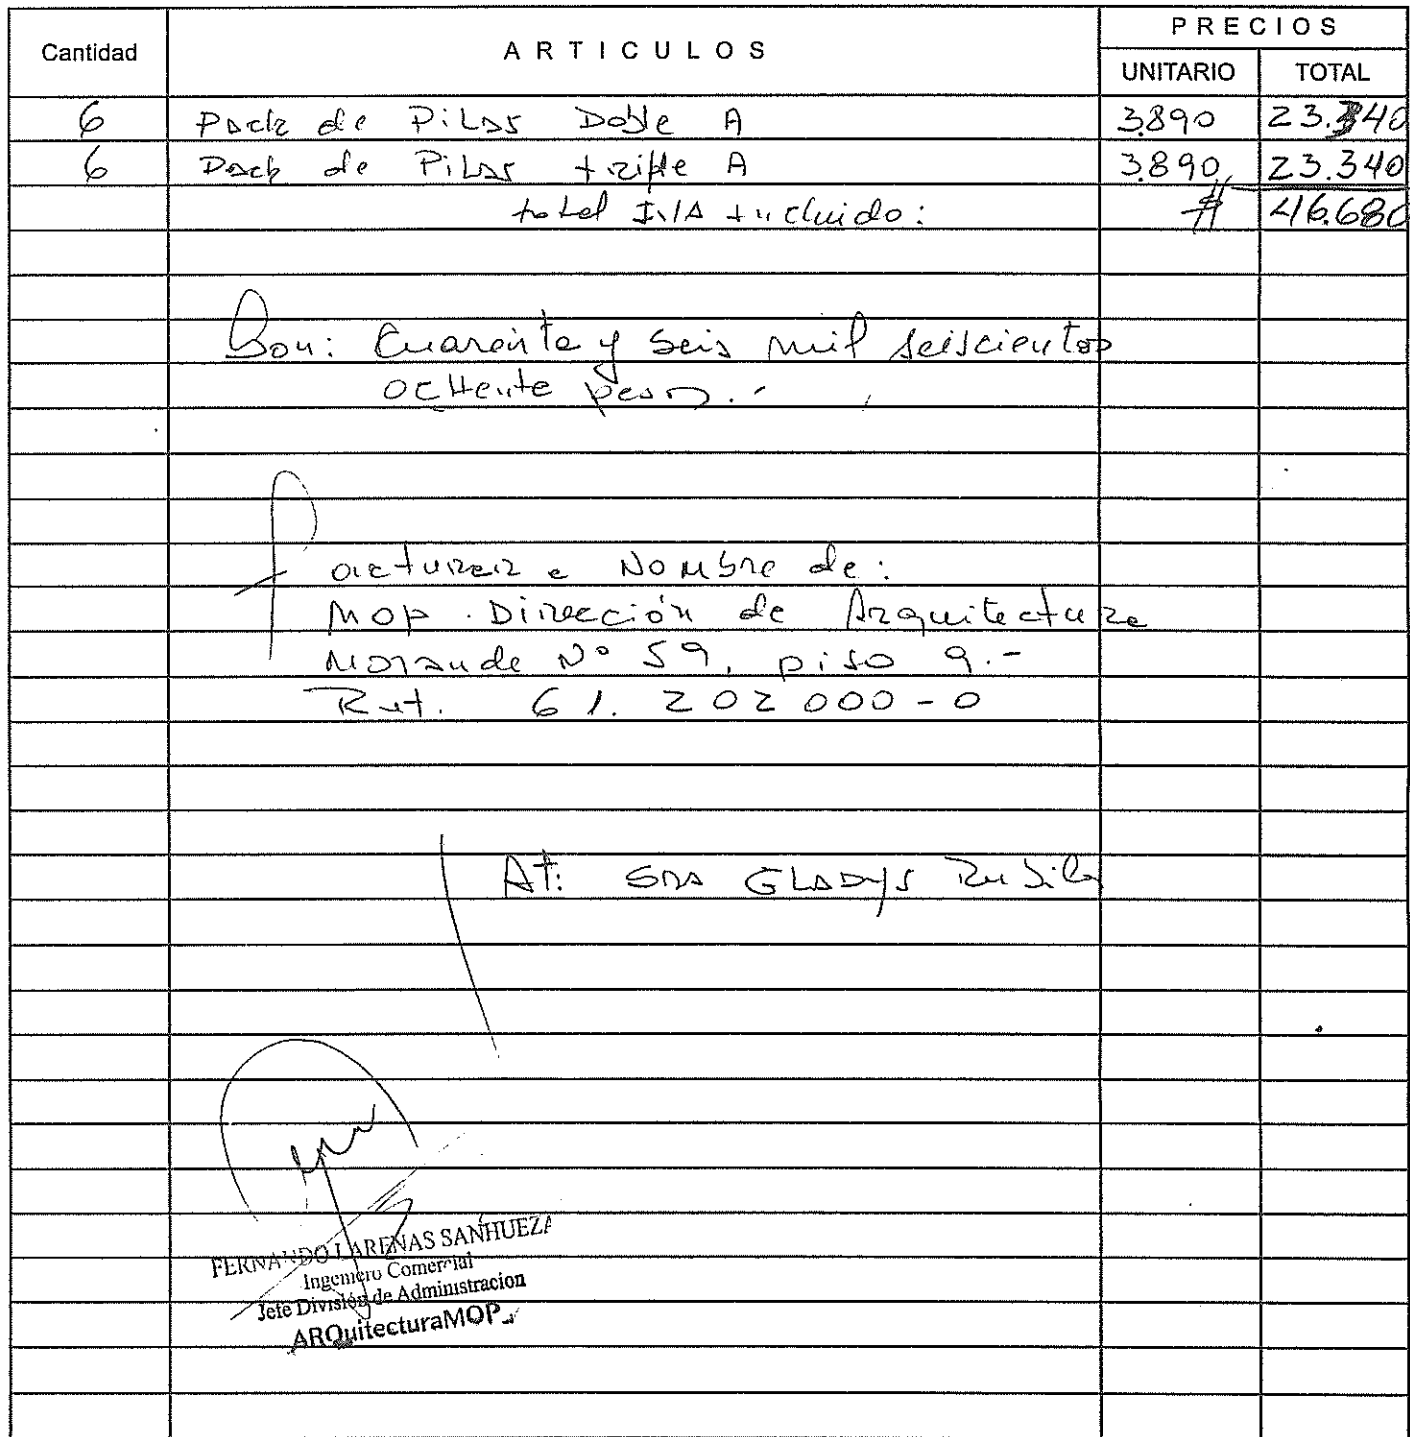 PRECIOS
Cantidad ARTICULOS UNITARIO TOTAL
6 Pack de Pilas Doble A 3.890 23.340
6 Pack de Pilas triple A 3.890 23.340
total IVA incluido: # 46.680
Son: Cuarenta y seis mil seiscientos
ochenta pesos.-
Facturar a Nombre de:
MOP. Dirección de Arquitectura
Morande Nº 59, piso 9.-
Rut. 61.202000-0
At: SRA GLADYS Rubilar
FERNANDO LARENAS SANHUEZA
Ingeniero Comercial
Jefe División de Administracion
ARQuitecturaMOP